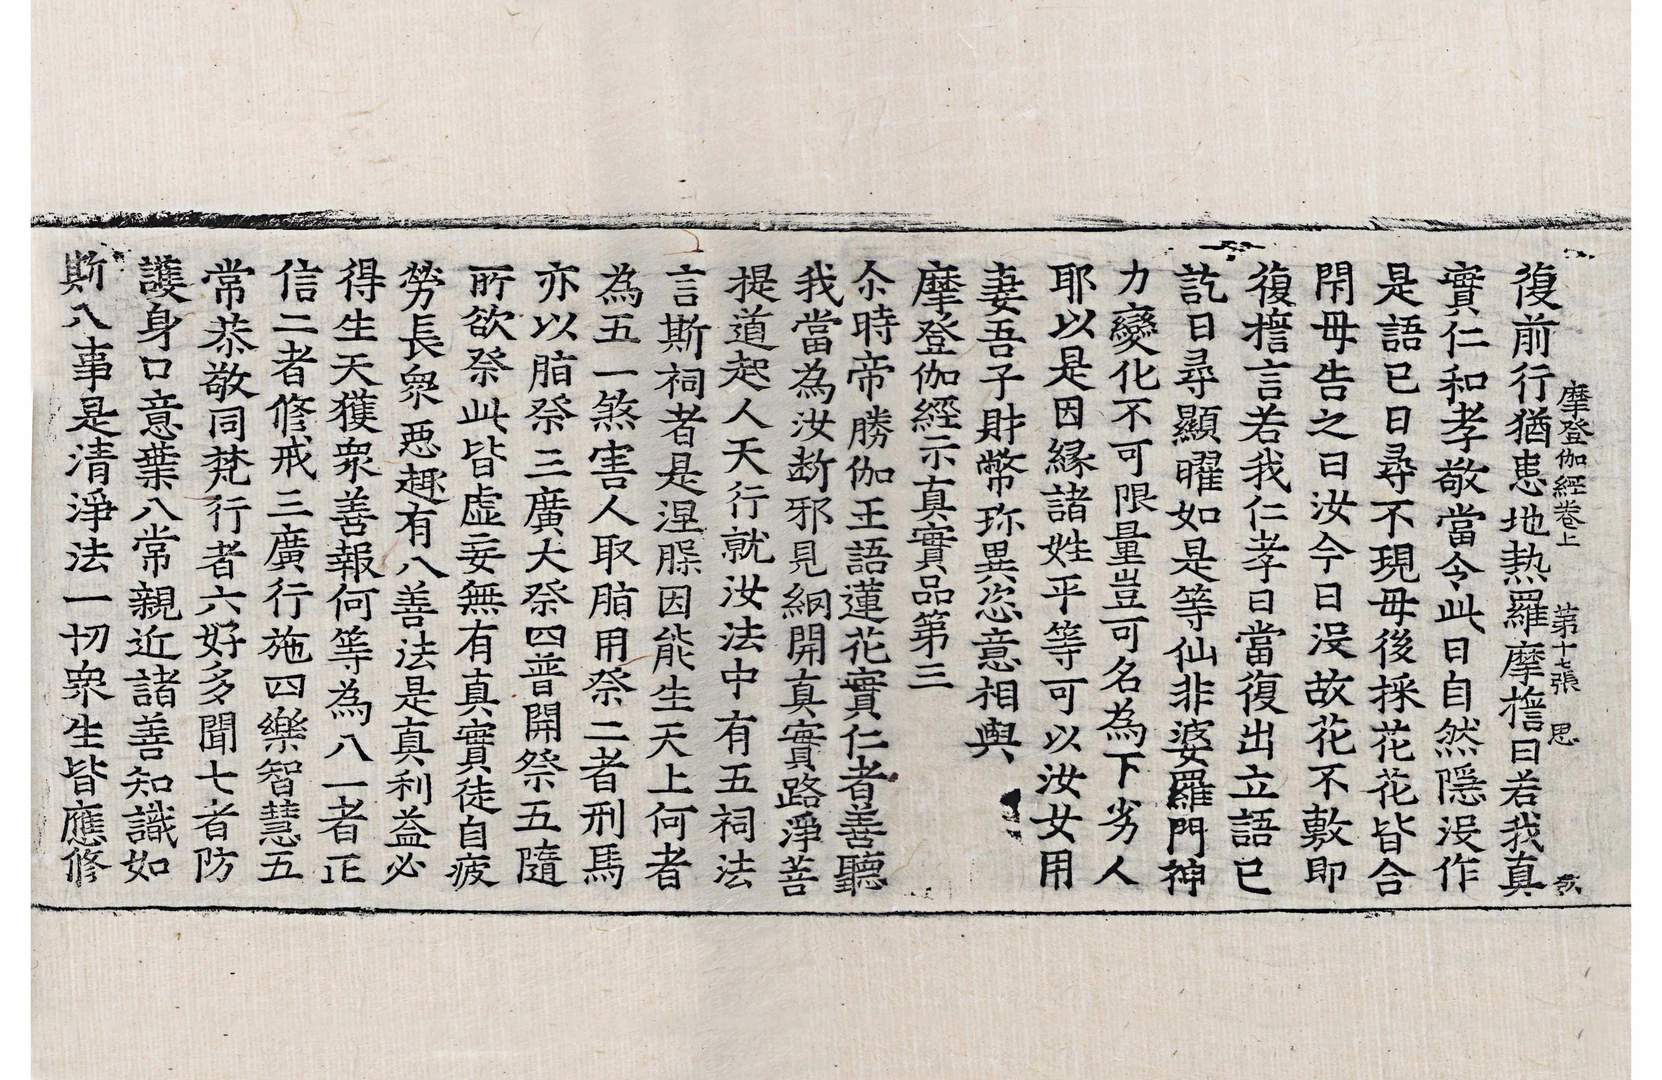 摩登伽經卷上　第十七張　思
復前行猶患地熱羅摩擔曰若我真
實仁和孝敬當令此日自然隱没作
是語已日尋不現毋後採花花皆合
閇毋告之曰汝今日没故花不敷即
復擔言若我仁孝日當復出立語已
訖日尋顯曜如是等仙非婆羅門神
力變化不可限量豈可名為下劣人
耶以是因緣諸姓平等可以汝女用
妻吾子財幣珎異恣意相與
摩登伽經示真實品第三
尒時帝勝伽王語蓮花實仁者善聽
我當為汝斷邪見網開真實路淨菩
提道起人天行就汝法中有五祠法
言斯祠者是涅槃因能生天上何者
為五一煞害人取脂用祭二者刑馬
亦以脂祭三廣大祭四普開祭五隨
所欲祭此皆虛妄無有真實徒自疲
勞長衆惡趣有八善法是真利益必
得生天獲衆善報何等為八一者正
信二者修戒三廣行施四樂智慧五
常恭敬同梵行者六好多聞七者防
護身口意業八常親近諸善知識如
斯八事是清淨法一切衆生皆應修